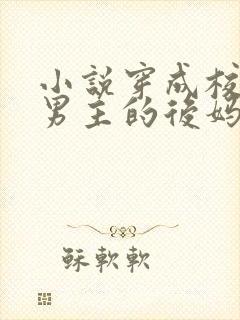 小說穿成校
男主的後媽
穌軟軟